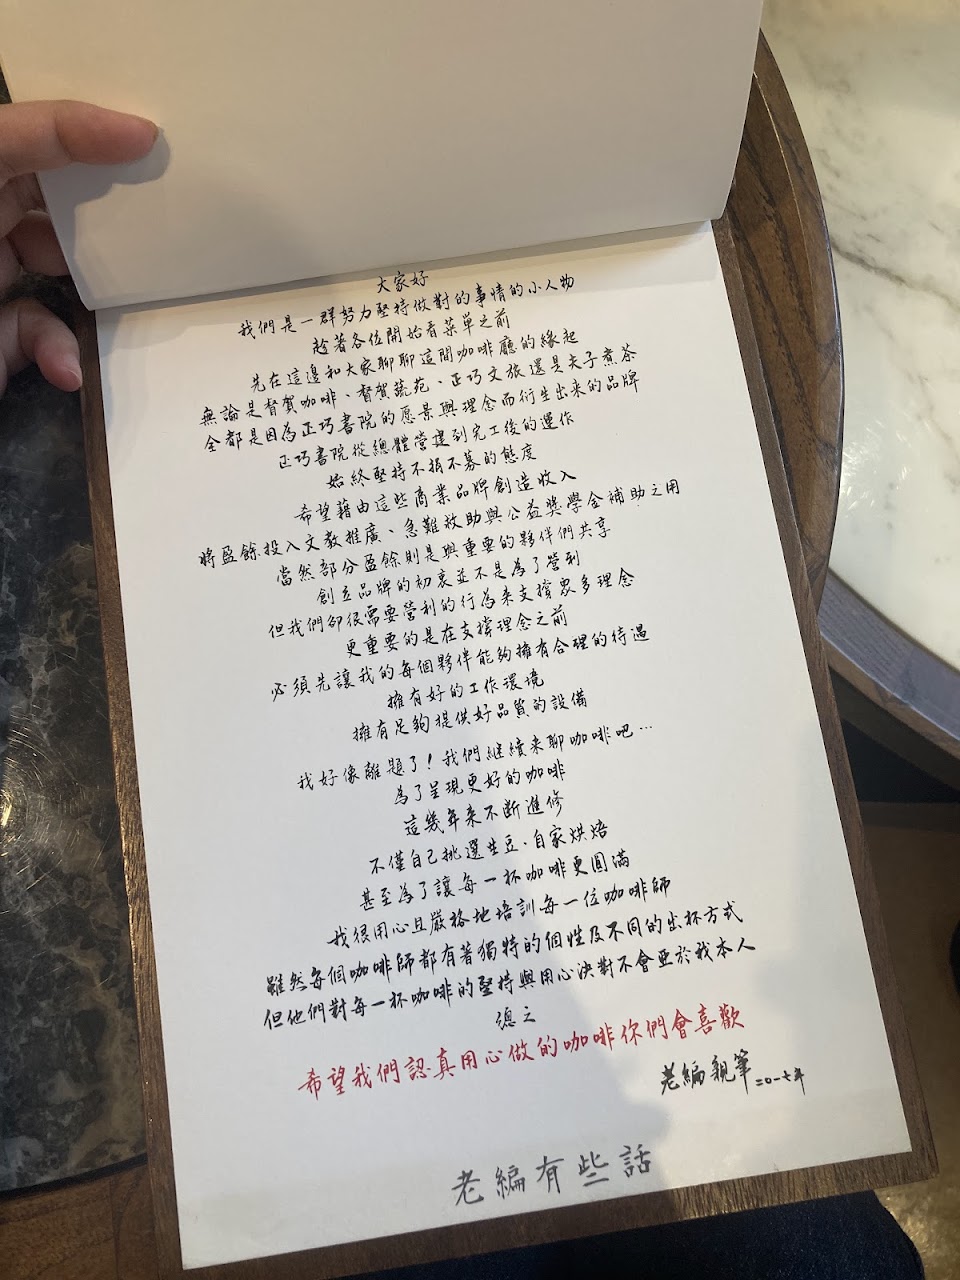 大家好
我們是一群努力堅持做對的事情的小人物
趁著各位開始看菜單之前
先在這邊和大家聊聊這間咖啡廳的緣起
無論是督賀咖啡、督賀蔬苑、正巧文旅還是夫子煮茶
全都是因為正巧書院的愿景與理念而衍生出來的品牌
正巧書院從總體營建到完工後的運作
始終堅持不捐不募的態度
希望藉由這些商業品牌創造收入
將盈餘投入文教推廣、急難救助與公益獎學金補助之用
當然部分盈餘則是與重要的夥伴們共享
創立品牌的初衷並不是為了營利
但我們卻很需要營利的行為來支撐眾多理念
更重要的是在支撐理念之前
必須先讓我的每個夥伴能夠擁有合理的待遇
擁有好的工作環境
擁有足夠提供好品質的設備
我好像離題了！我們繼續來聊咖啡吧…
為了呈現更好的咖啡
這幾年來不斷進修
不僅自己挑選生豆．自家烘焙
甚至為了讓每一杯咖啡更圓滿
我很用心且嚴格地培訓每一位咖啡師
雖然每個咖啡師都有著獨特的個性及不同的出杯方式
但他們對每一杯咖啡的堅持與用心決對不會亞於我本人
總之
希望我們認真用心做的咖啡你們會喜歡
老編親筆 二〇一七年
老編有些話